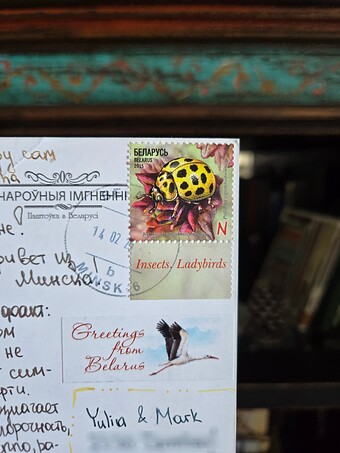 by cam
НАРОЎНЫЯ ІМГНЕННІ
Паштоўка з Беларусі
БЕЛАРУСЬ
BELARUS
2015
N
не!
14 02
ь
MINSK 6
Insects. Ladybirds
ривет из
Минска!
Greetings
from
Belarus
факт:
ом
не
сим-
рти.
значает
Yulia & Mark